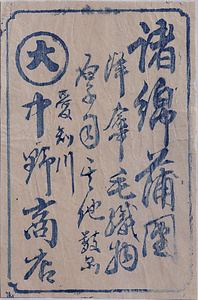 諸綿蒲団
洋傘毛織物
其他数品
愛知川
大
中野商店